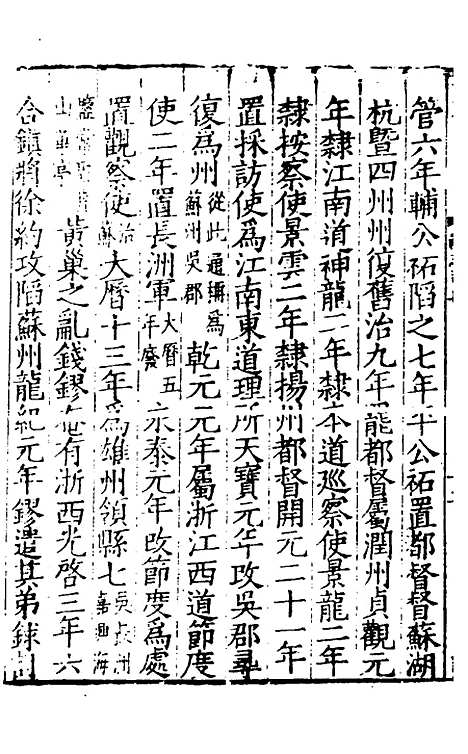 管六年輔公祏陷之七年平公祏置都督督蘇湖
杭暨四州州復舊治九年罷都督屬潤州貞觀元
年隸江南道神龍二年隸本道巡察使景龍二年
隸按察使景雲二年隸揚州都督開元二十一年
置採訪使爲江南東道理所天寶元年改吳郡尋
復爲州從此通稱爲蘇州吳郡乾元元年屬浙江西道節度
使二年置長洲軍大曆五年廢永泰元年改節度爲處
置觀察使治蘇大曆十三年爲雄州領縣七吳長洲嘉興海
鹽常熟山華亭黃巢之亂錢鏐奄有浙西光啓三年六
合鎮將徐約攻陷蘇州龍紀元年鏐遣其弟銶